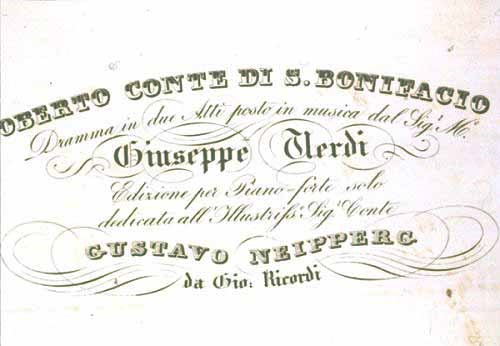 OBERTO CONTE DI S. BONIFACIO
Dramma in due Atti posto in musica dal Sig.r M.o
Giuseppe Verdi
Edizione per Piano-forte solo
dedicata all'Illustrifs. Sig.r Conte
GUSTAVO NEIPPERG
da Gio: Ricordi